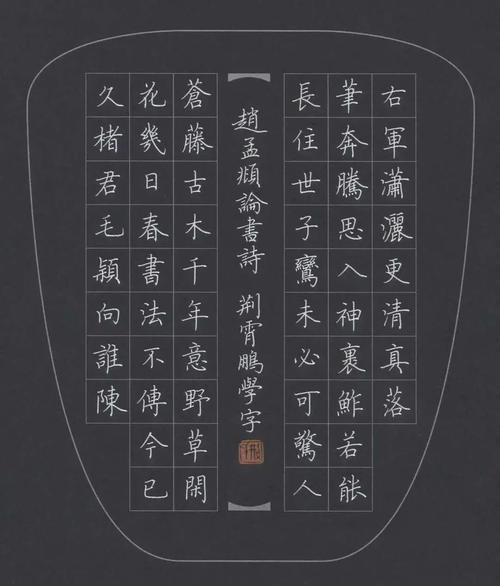 右軍瀟灑更清真落
筆奔騰思入神裏鮓若能
長住世子鸞未必可驚人
趙孟頫論書詩 荊霄鵬學字
蒼藤古木千年意野草閑
花幾日春書法不傳今已
久楮君毛穎向誰陳